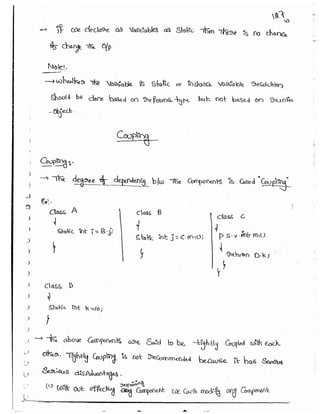 → If we declare all variables as static then there is no chance
to change the o/p.
Note:-
→ whether the variable is static or instance variable resolution
should be done based on reference type but not based on runtime
- object.
Coupling
Coupling:-
→ The degree of dependency b/w the components is called "Coupling"
Ex:-
class A
{
static int i = B.j;
}
class B
{
static int j = C.m1();
}
class C
{
p.s.v. int m1()
{
return D.k;
}
}
class D
{
static int k=10;
}
→ The above components are said to be tightly coupled with each
other. Tightly coupling is not recommended because it has several
serious disadvantages.
(1) with out effecting remaining component we can't modify any component